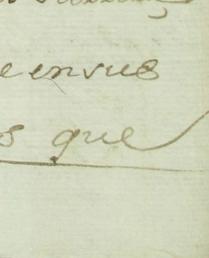 e ensus
s que